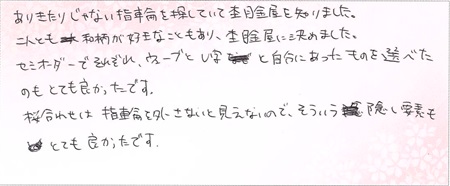 ありきたりじゃない指輪を探していて杢目金屋を知りました。
二人とも和柄が好きなこともあり、杢目金屋に決めました。
セミオーダーでそれぞれ、ウェーブとU字と自分にあったものを選べた
のもとても良かったです。
桜合わせは指輪を外さないと見えないので、そういう隠し要素も
とても良かったです。